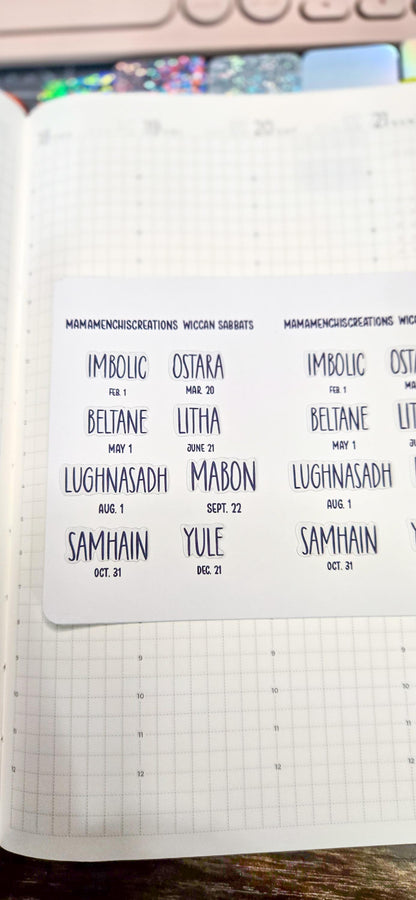 18
19
20
21
MAMAMENCHISCREATIONS WICCAN SABBATS
IMBOLIC OSTARA
FEB. 1 MAR. 20
BELTANE LITHA
MAY 1 JUNE 21
LUGHNASADH MABON
AUG. 1 SEPT. 22
SAMHAIN YULE
OCT. 31 DEC. 21
MAMAMENCHISCREATIONS
IMBOLIC
FEB. 1
BELTANE
MAY 1
LUGHNASADH
AUG. 1
SAMHAIN
OCT. 31
9 9 9
10 10 10
11 11 11
12 12 12